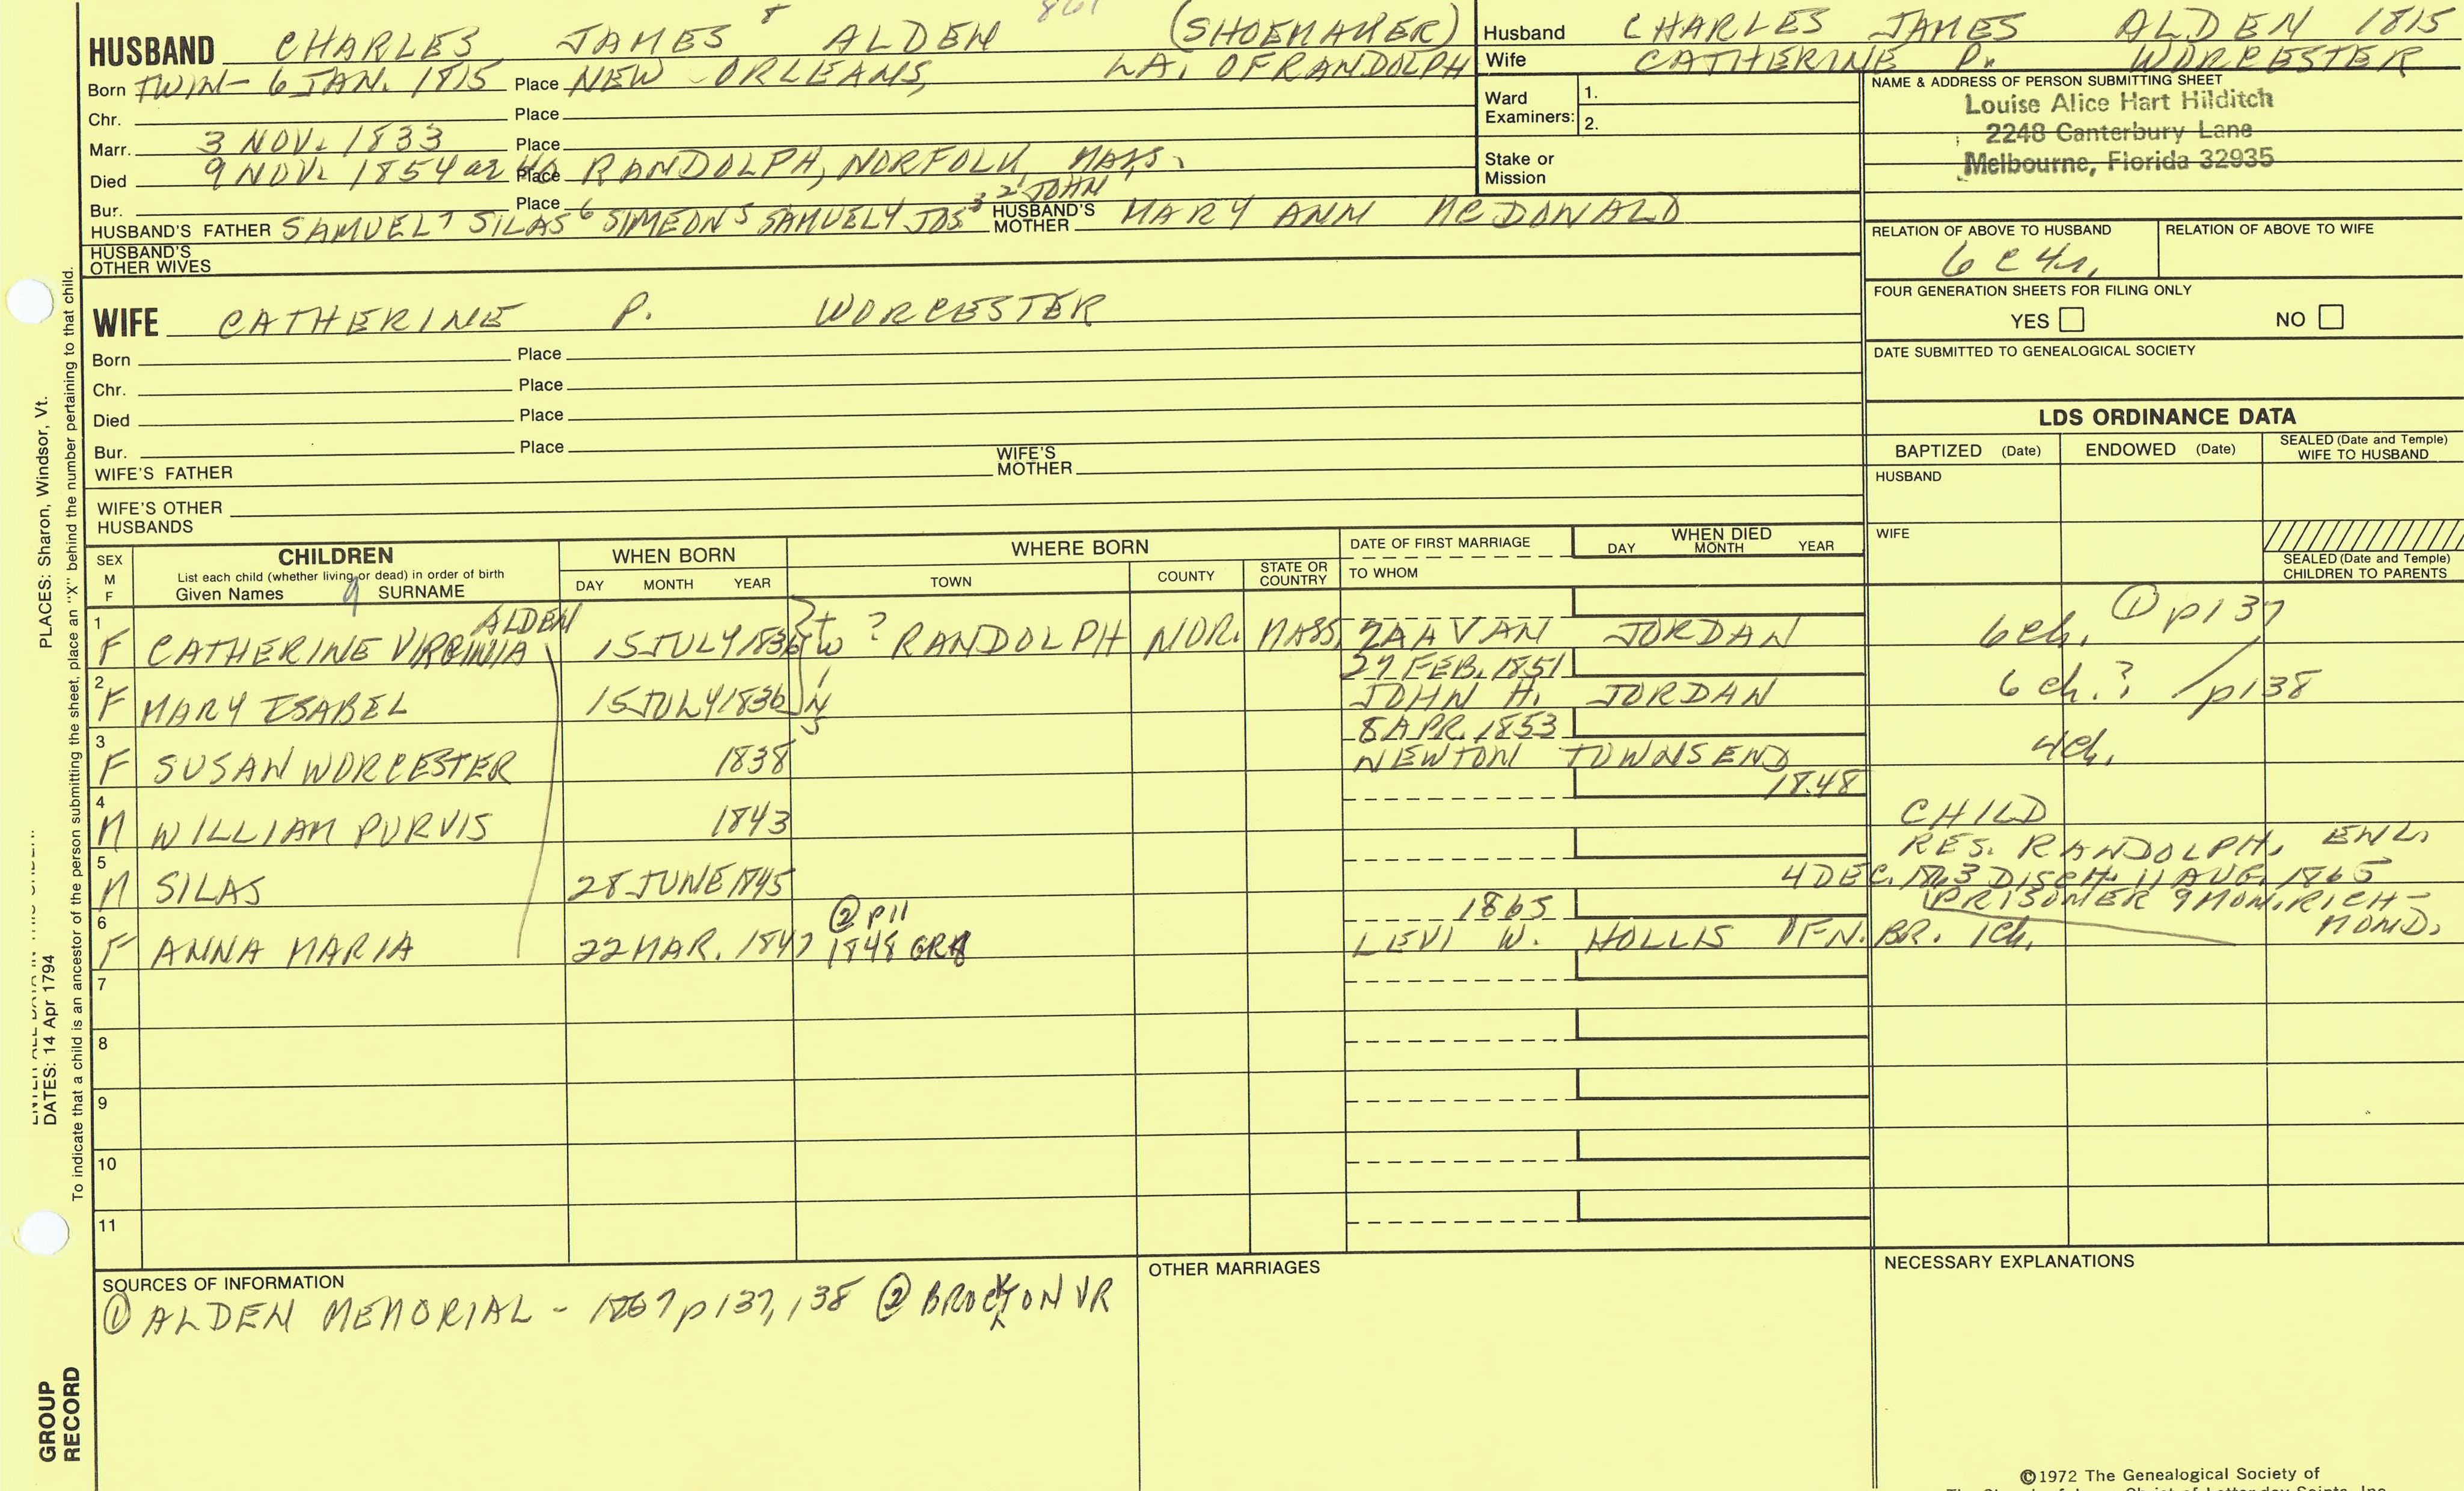 HUSBAND CHARLES JAMES 8 ALDEN (SHOEMAKER)
Born TWIN- 6 JAN. 1815 Place NEW ORLEANS, LA. OF RANDOLPH
Chr. Place
Marr. 3 NOV. 1833 Place
Died 9 NOV. 1854 ae 40 Place RANDOLPH, NORFOLK, MASS.
Bur. Place
HUSBAND'S FATHER SAMUEL 7 SILAS 6 SIMEON 5 SAMUEL 4 JOS 3 2 1 JOHN HUSBAND'S MOTHER MARY ANN McDONALD
HUSBAND'S OTHER WIVES
WIFE CATHERINE P. WORCESTER
Born Place
Chr. Place
Died Place
Bur. Place
WIFE'S FATHER WIFE'S MOTHER
WIFE'S OTHER HUSBANDS
Husband CHARLES JAMES ALDEN 1815
Wife CATHERINE P. WORCESTER
Ward Examiners: 1.
2.
Stake or Mission
NAME & ADDRESS OF PERSON SUBMITTING SHEET
Louise Alice Hart Hilditch
2248 Canterbury Lane
Melbourne, Florida 32935
RELATION OF ABOVE TO HUSBAND RELATION OF ABOVE TO WIFE
6 C 4r.
FOUR GENERATION SHEETS FOR FILING ONLY
YES NO
DATE SUBMITTED TO GENEALOGICAL SOCIETY
LDS ORDINANCE DATA
BAPTIZED (Date) ENDOWED (Date) SEALED (Date and Temple) WIFE TO HUSBAND
HUSBAND
WIFE
SEALED (Date and Temple) CHILDREN TO PARENTS
SEX M F CHILDREN WHEN BORN WHERE BORN DATE OF FIRST MARRIAGE WHEN DIED
List each child (whether living or dead) in order of birth
Given Names 9 SURNAME DAY MONTH YEAR TOWN COUNTY STATE OR COUNTRY TO WHOM DAY MONTH YEAR
1 F CATHERINE VIRGINIA ALDEN 15 JULY 1836 ? RANDOLPH NOR. MASS. ZAAVAN JORDAN 6 ch. ① p137
2 F MARY ISABEL 15 JULY 1836 27 FEB. 1851 JOHN H. JORDAN 6 ch.? p138
3 F SUSAN WORCESTER 1838 8 APR. 1853 NEWTON TOWNSEND 4 ch.
4 M WILLIAM PURVIS 1843 1848 CHILD
5 M SILAS 28 JUNE 1845 RES. RANDOLPH, ENL. 4 DEC. 1863 DISCH. 11 AUG. 1865 PRISONER 9 MON. RICHMOND.
6 F ANNA MARIA 22 MAR. 1847 ② p11 1848 GR 1865 LEVI W. HOLLIS OF N. BR. 1 ch.
7
8
9
10
11
SOURCES OF INFORMATION
① ALDEN MEMORIAL - 1867 p137, 138 ② BROCKTON VR
OTHER MARRIAGES
NECESSARY EXPLANATIONS
©1972 The Genealogical Society of
PLACES: Sharon, Windsor, Vt.
DATES: 14 Apr 1794
To indicate that a child is an ancestor of the person submitting the sheet, place an "X" behind the number pertaining to that child.
GROUP RECORD